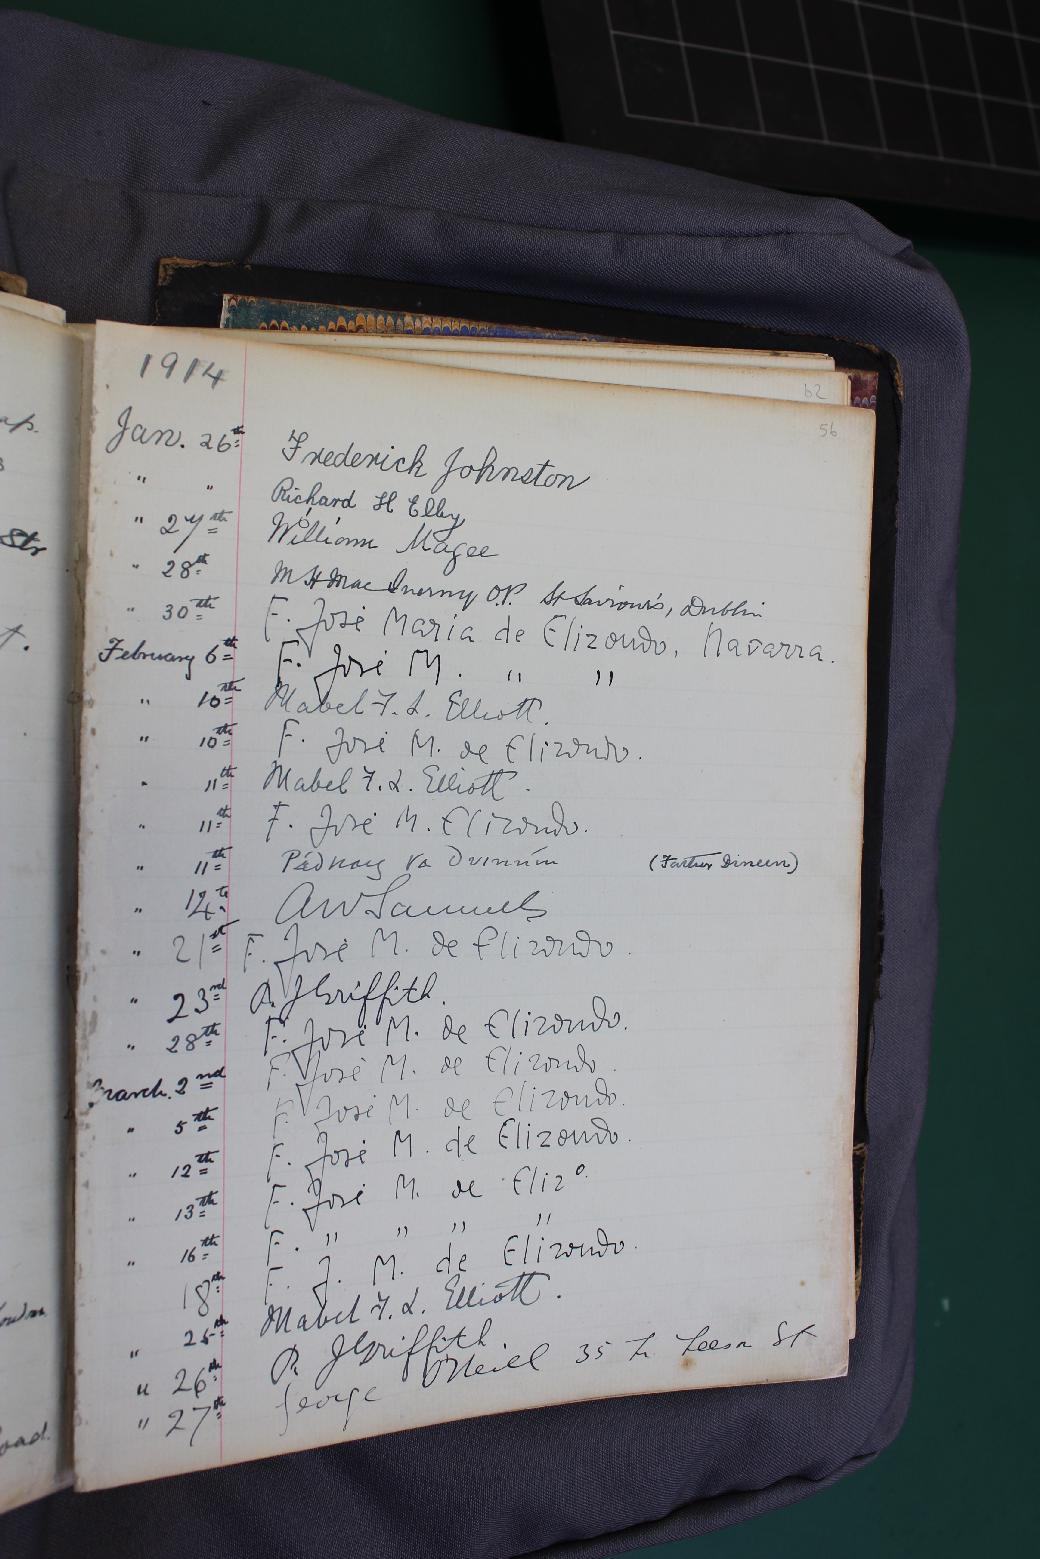 62
56
1914
Jan. 26th Frederick Johnston
" " Richard H Elby
" 27th William Magee
" 28th M H MacInerny O.P. St Saviour's, Dublin
" 30th F. José María de Elizondo, Navarra.
February 6th F. José M. " "
" 10th Mabel F. L. Elliott.
" 10th F. José M. de Elizondo.
" 11th Mabel F. L. Elliott.
" 11th F. José M. Elizondo.
" 11th Pádraig Ua Duinnín (Father Dineen)
" 14th AW Samuels
" 21st F. José M. de Elizondo.
" 23rd P. J Griffith.
" 28th F. José M. de Elizondo.
March. 2nd F. José M. de Elizondo.
" 5th F. José M. de Elizondo.
" 12th F. José M. de Elizondo.
" 13th F. José M. de Elizº.
" 16th F. " " " "
18th F. J. M. de Elizondo.
" 25th Mabel F. L. Elliott.
" 26th P. J Griffith.
" 27th George O'Neill 35 Leeson St